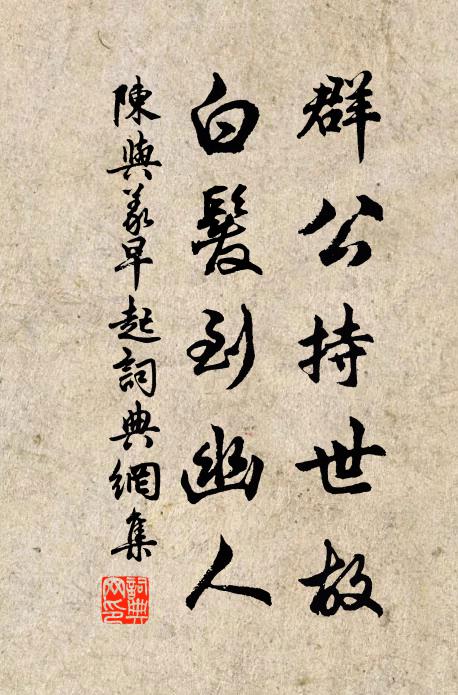 群公持世故
白髮到幽人
陳與義早起詞典網集
詞典網印